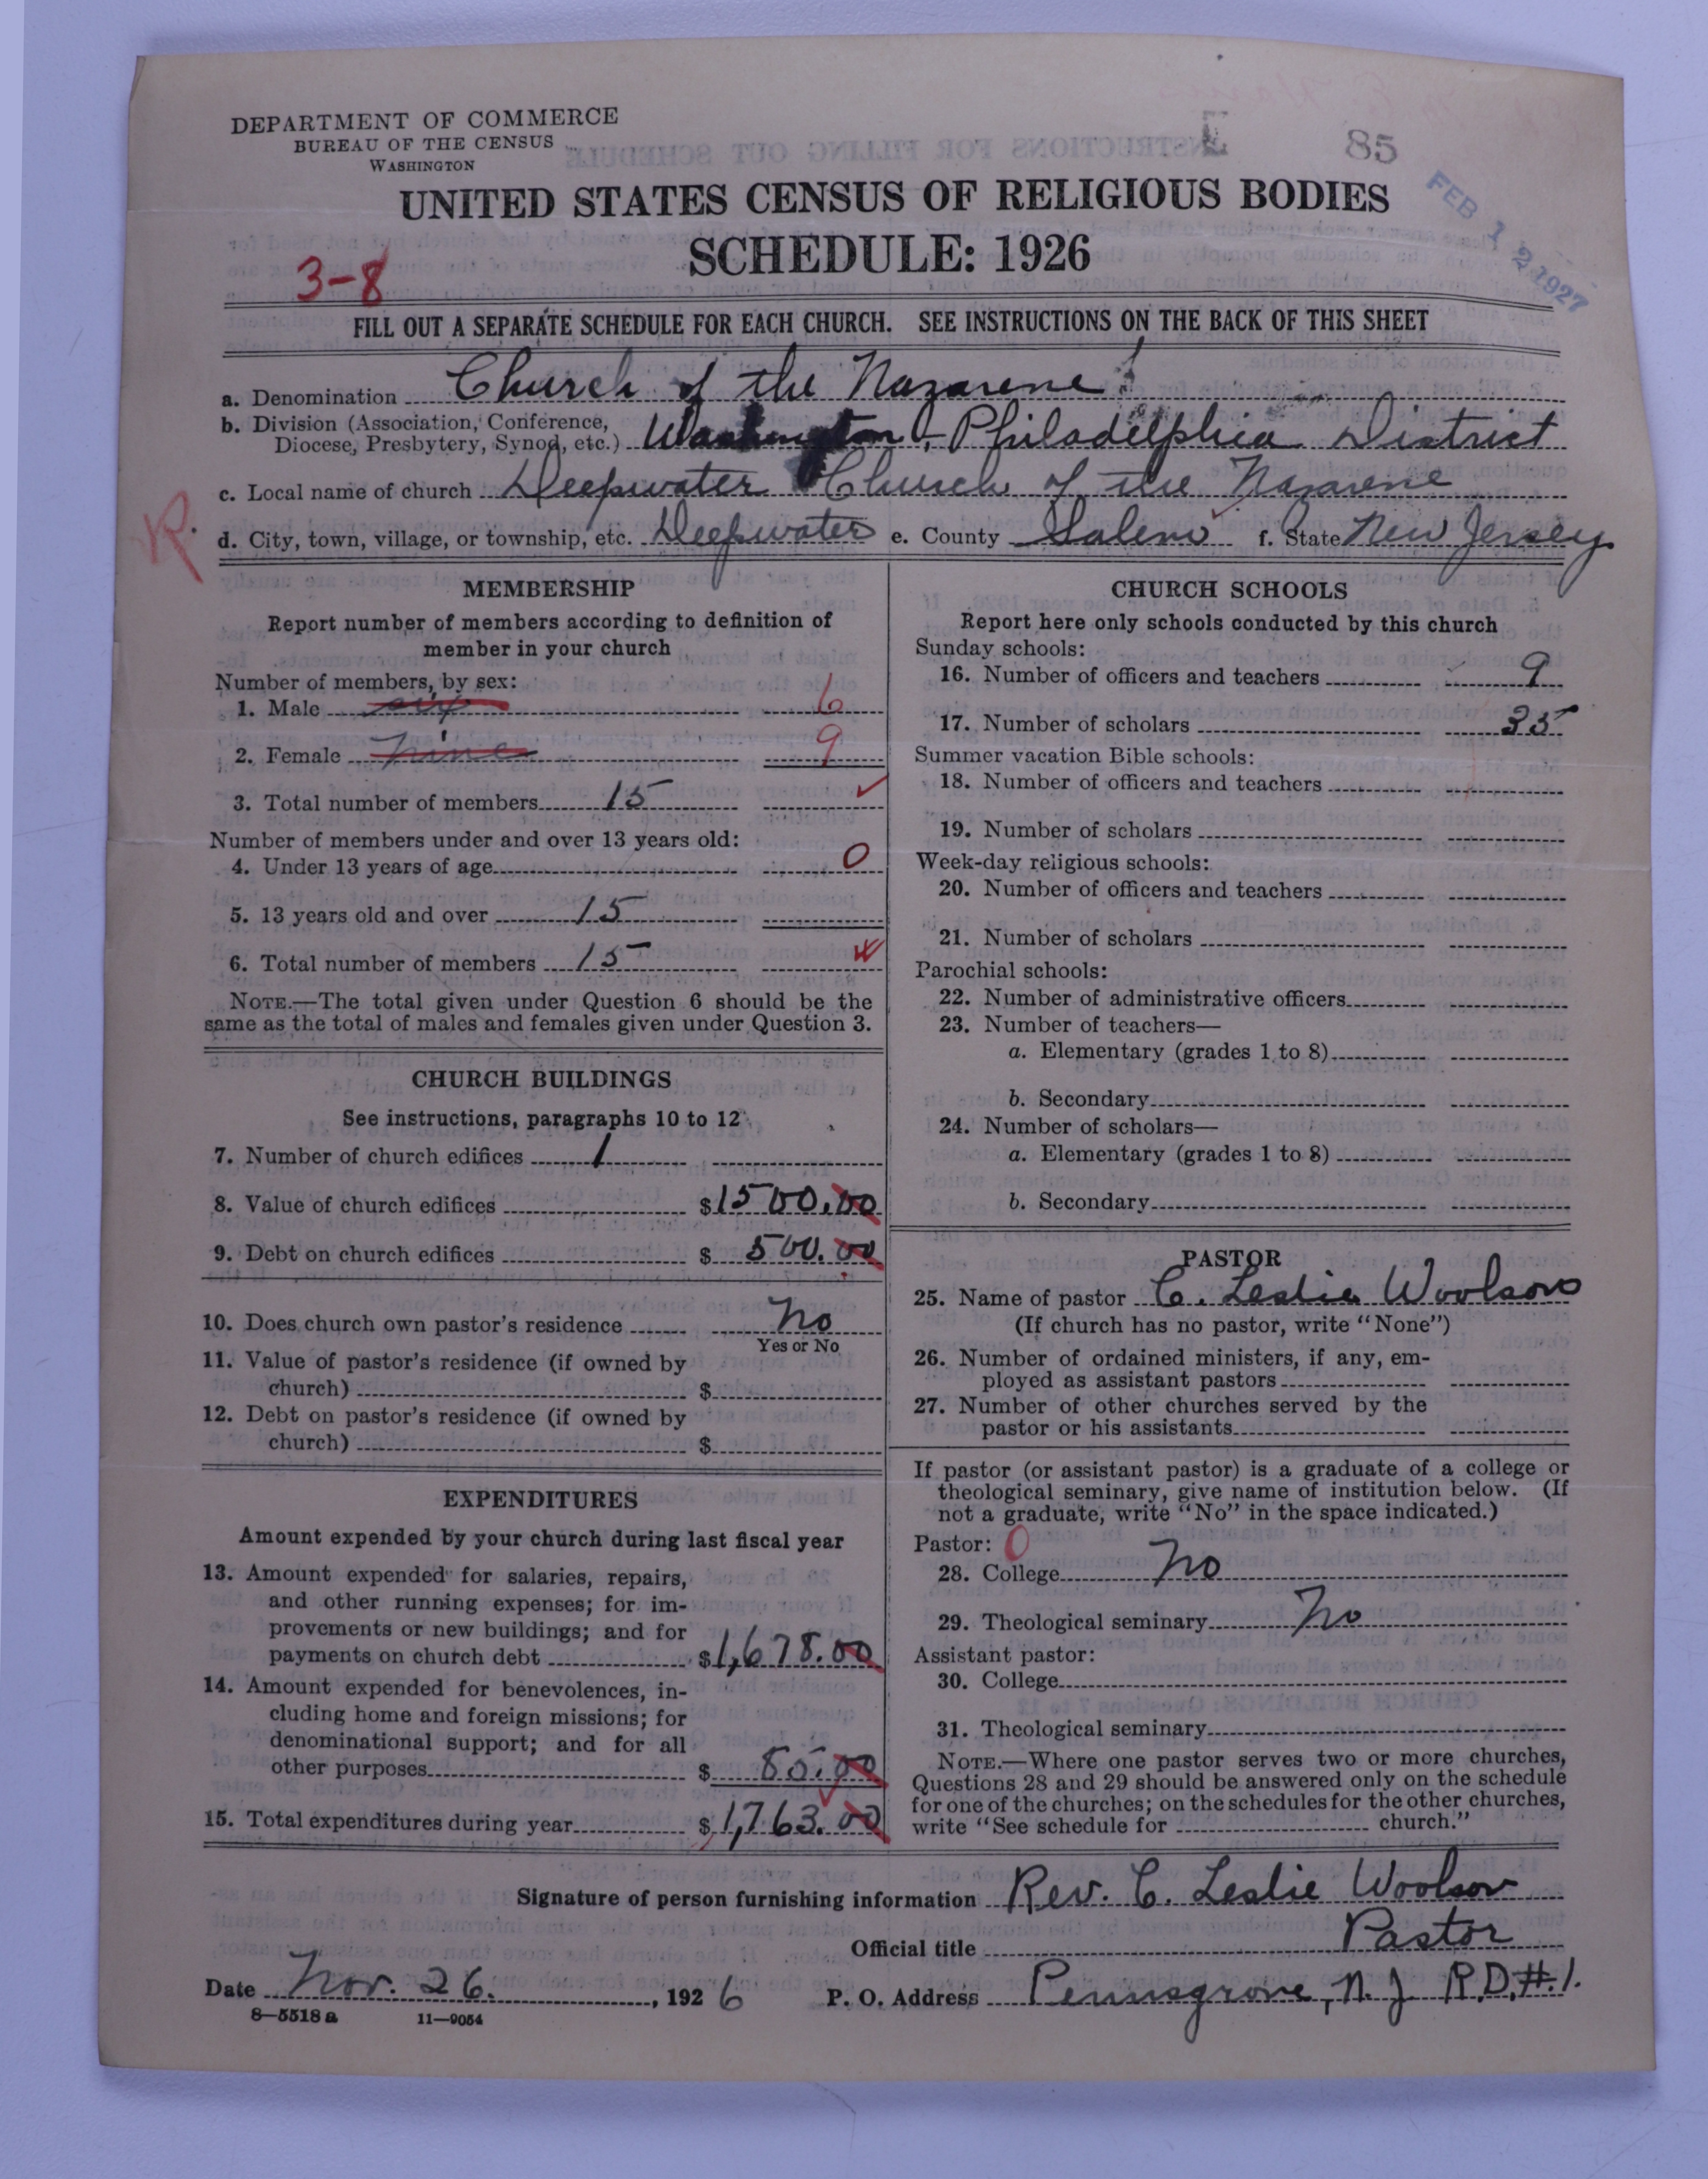 DEPARTMENT OF COMMERCE
BUREAU OF THE CENSUS
WASHINGTON
E 85
FEB 12 1927
UNITED STATES CENSUS OF RELIGIOUS BODIES
SCHEDULE: 1926
3-8
FILL OUT A SEPARATE SCHEDULE FOR EACH CHURCH. SEE INSTRUCTIONS ON THE BACK OF THIS SHEET
a. Denomination Church of the Nazarene
b. Division (Association, Conference,
Diocese, Presbytery, Synod, etc.) Washington, Philadelphia District
c. Local name of church Deepwater Church of the Nazarene
R.
d. City, town, village, or township, etc. Deepwater e. County Salem f. State New Jersey
MEMBERSHIP
Report number of members according to definition of
member in your church
Number of members, by sex:
1. Male six 6
2. Female nine 9
3. Total number of members 15
Number of members under and over 13 years old:
4. Under 13 years of age 0
5. 13 years old and over 15
6. Total number of members 15
NOTE.—The total given under Question 6 should be the
same as the total of males and females given under Question 3.
CHURCH BUILDINGS
See instructions, paragraphs 10 to 12
7. Number of church edifices 1
8. Value of church edifices $1500.00
9. Debt on church edifices $ 500.00
10. Does church own pastor's residence No
Yes or No
11. Value of pastor's residence (if owned by
church) $
12. Debt on pastor's residence (if owned by
church) $
EXPENDITURES
Amount expended by your church during last fiscal year
13. Amount expended for salaries, repairs,
and other running expenses; for im-
provements or new buildings; and for
payments on church debt $1,678.00
14. Amount expended for benevolences, in-
cluding home and foreign missions; for
denominational support; and for all
other purposes $ 85.00
15. Total expenditures during year $1,763.00
CHURCH SCHOOLS
Report here only schools conducted by this church
Sunday schools:
16. Number of officers and teachers 9
17. Number of scholars 35
Summer vacation Bible schools:
18. Number of officers and teachers
19. Number of scholars
Week-day religious schools:
20. Number of officers and teachers
21. Number of scholars
Parochial schools:
22. Number of administrative officers
23. Number of teachers—
a. Elementary (grades 1 to 8)
b. Secondary
24. Number of scholars—
a. Elementary (grades 1 to 8)
b. Secondary
PASTOR
25. Name of pastor C. Leslie Woolson
(If church has no pastor, write "None")
26. Number of ordained ministers, if any, em-
ployed as assistant pastors
27. Number of other churches served by the
pastor or his assistants
If pastor (or assistant pastor) is a graduate of a college or
theological seminary, give name of institution below. (If
not a graduate, write "No" in the space indicated.)
Pastor: 0
28. College No
29. Theological seminary No
Assistant pastor:
30. College
31. Theological seminary
NOTE.—Where one pastor serves two or more churches,
Questions 28 and 29 should be answered only on the schedule
for one of the churches; on the schedules for the other churches,
write "See schedule for church."
Signature of person furnishing information Rev. C. Leslie Woolson
Official title Pastor
Date Nov. 26. , 1926 P. O. Address Pennsgrove, N.J. R.D.#1.
8-5518a 11-9054